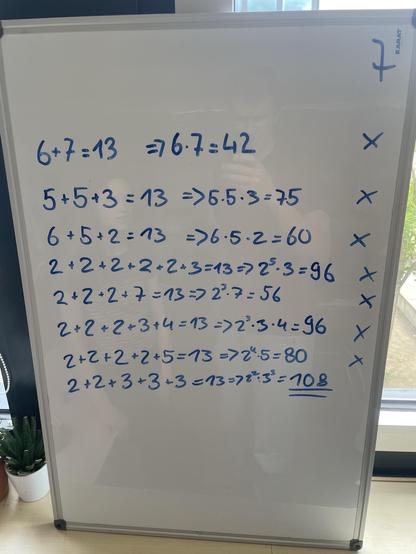 KAMAT
7
6+7=13 => 6·7=42 ×
5+5+3=13 => 5·5·3=75 ×
6+5+2=13 => 6·5·2=60 ×
2+2+2+2+2+3=13 => 2⁵·3=96 ×
2+2+2+7=13 => 2³·7=56 ×
2+2+2+3+4=13 => 2³·3·4=96 ×
2+2+2+2+5=13 => 2⁴·5=80 ×
2+2+3+3+3=13 => 2²·3³=108